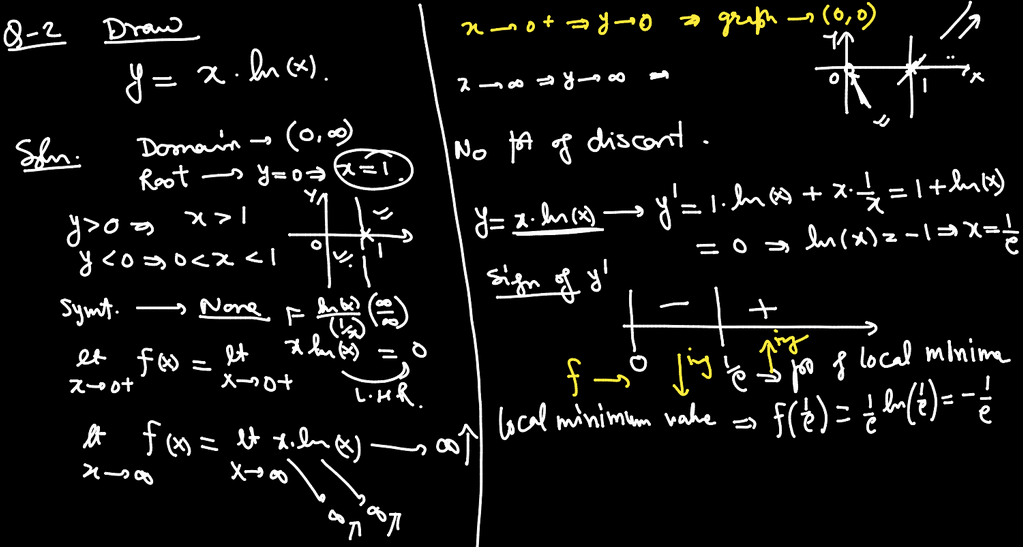 Q-2 Draw
y = x · ln(x).
Soln. Domain → (0, ∞)
Root → y=0 ⇒ x=1.
y>0 ⇒ x>1
y<0 ⇒ 0<x<1
y 0 1
Symt. → None
= ln(x)/(1/x) (∞/∞)
lt x→0+ f(x) = lt x→0+ x ln(x) = 0
L.H.R.
lt x→∞ f(x) = lt x→∞ x.ln(x) → ∞↑
∞ ∞
x → 0+ ⇒ y→0 ⇒ graph → (0,0)
x → ∞ ⇒ y→∞ ⇒
y 0 1 x
No pt of discont.
y = x.ln(x) → y' = 1.ln(x) + x.1/x = 1+ln(x)
= 0 ⇒ ln(x) = -1 ⇒ x = 1/e
Sign of y'
− +
0 1/e → pt of local minima
f → ↓ing ↑ing
local minimum value ⇒ f(1/e) = 1/e ln(1/e) = -1/e